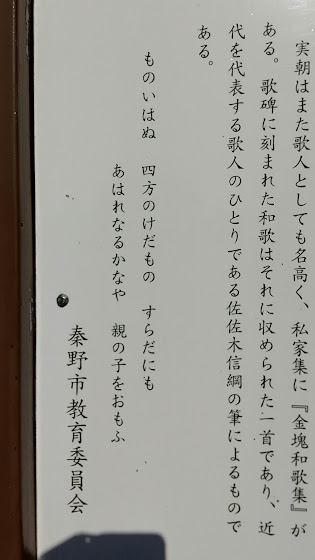 実朝はまた歌人としても名高く、私家集に『金塊和歌集』が
ある。歌碑に刻まれた和歌はそれに収められた一首であり、近
代を代表する歌人のひとりである佐佐木信綱の筆によるもので
ある。
ものいはぬ　四方のけだもの　すらだにも
あはれなるかなや　親の子をおもふ
秦野市教育委員会